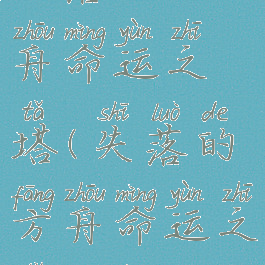 zhōu mìng yùn zhī
舟命运之
tǎ shī luò de
塔(失落的
fāng zhōu mìng yùn zhī
方舟命运之